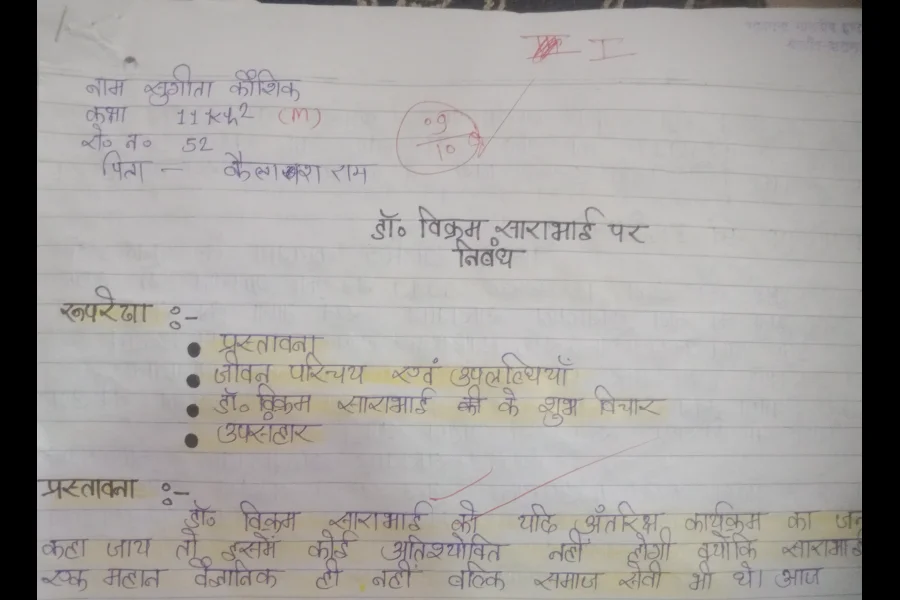 I
नाम सुगीता कौशिक
कक्षा 11 (M)
रो० न० 52
09/10
पिता - राम
डॉ० विक्रम साराभाई पर
निबंध
रूपरेखा :-
• प्रस्तावना
• जीवन परिचय एवं उपलब्धियाँ
• डॉ० विक्रम साराभाई की के शुभ विचार
• उपसंहार
प्रस्तावना :-
डॉ० विक्रम साराभाई को यदि अंतरिक्ष कार्यक्रम का
कहा जाय तो इसमें कोई अतिश्योक्ति नहीं होगी क्योंकि साराभाई
एक महान वैज्ञानिक ही नहीं बल्कि समाज सेवी भी थे। आज